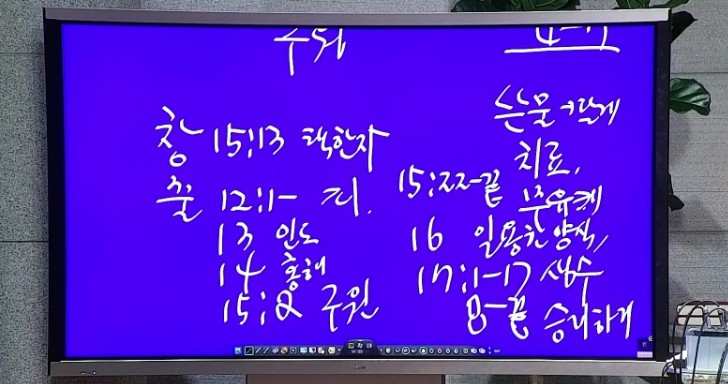 구원
창 15:13 택한자
출 12:1- 피.
13 인도
14 홍해
15:2 구원
쓴물→달게
치료,
15:22-끝 부유케
16 일용할 양식,
17:1-17 생수
8-끝 승리하게